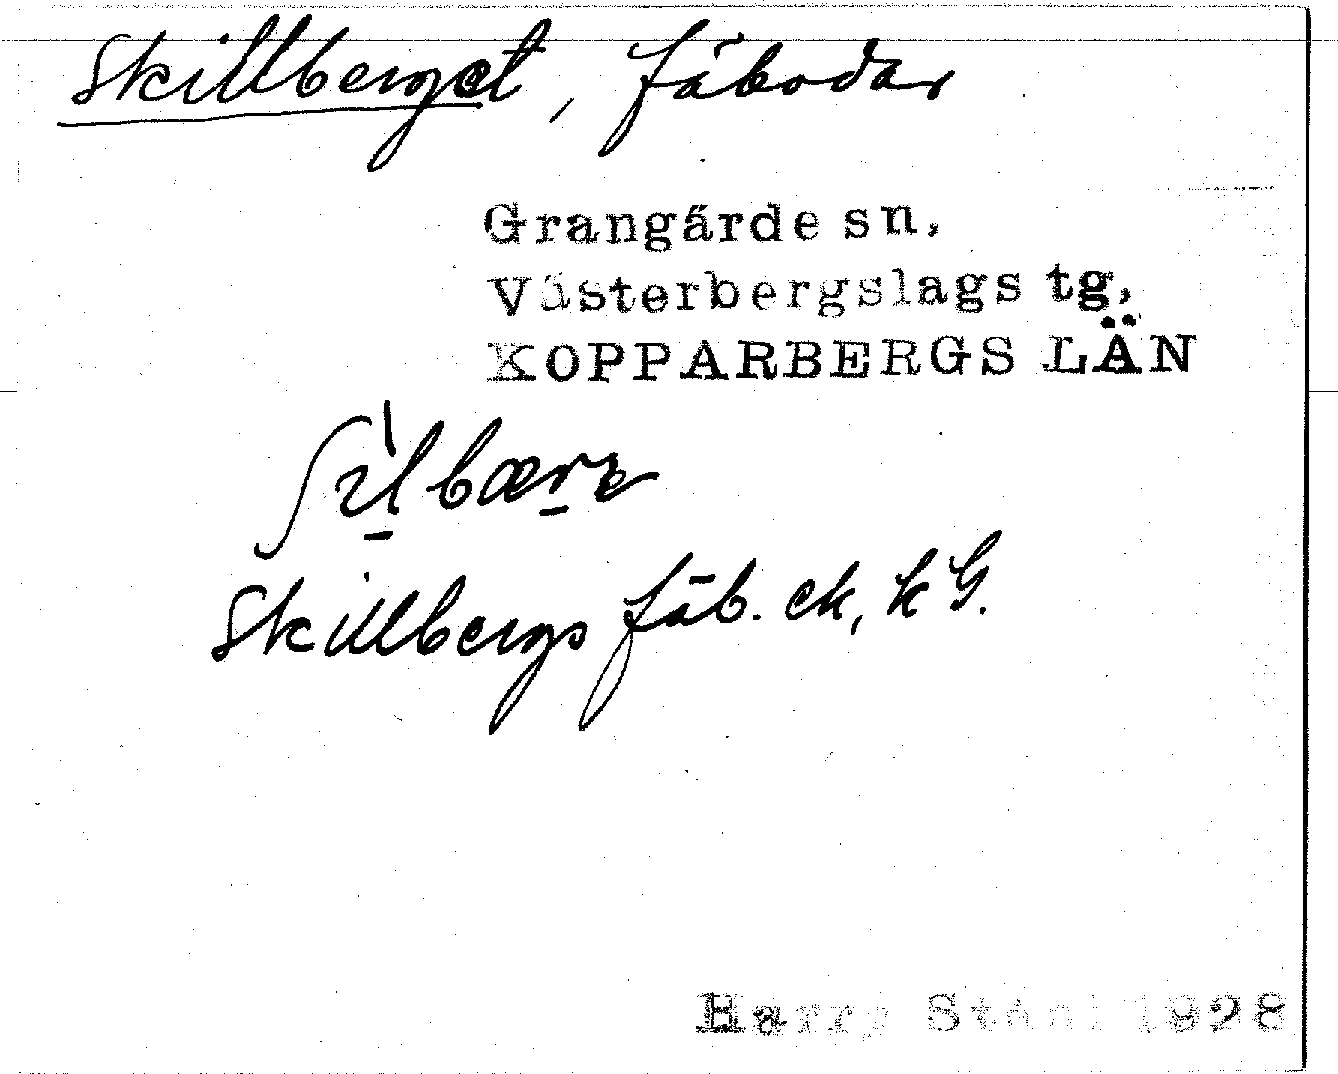 Skillberget, fäbodar
Grangärde sn,
Västerbergslags tg,
KOPPARBERGS LÄN
Skillbergs fäb. ek, k G.
Harry Ståhl 1928